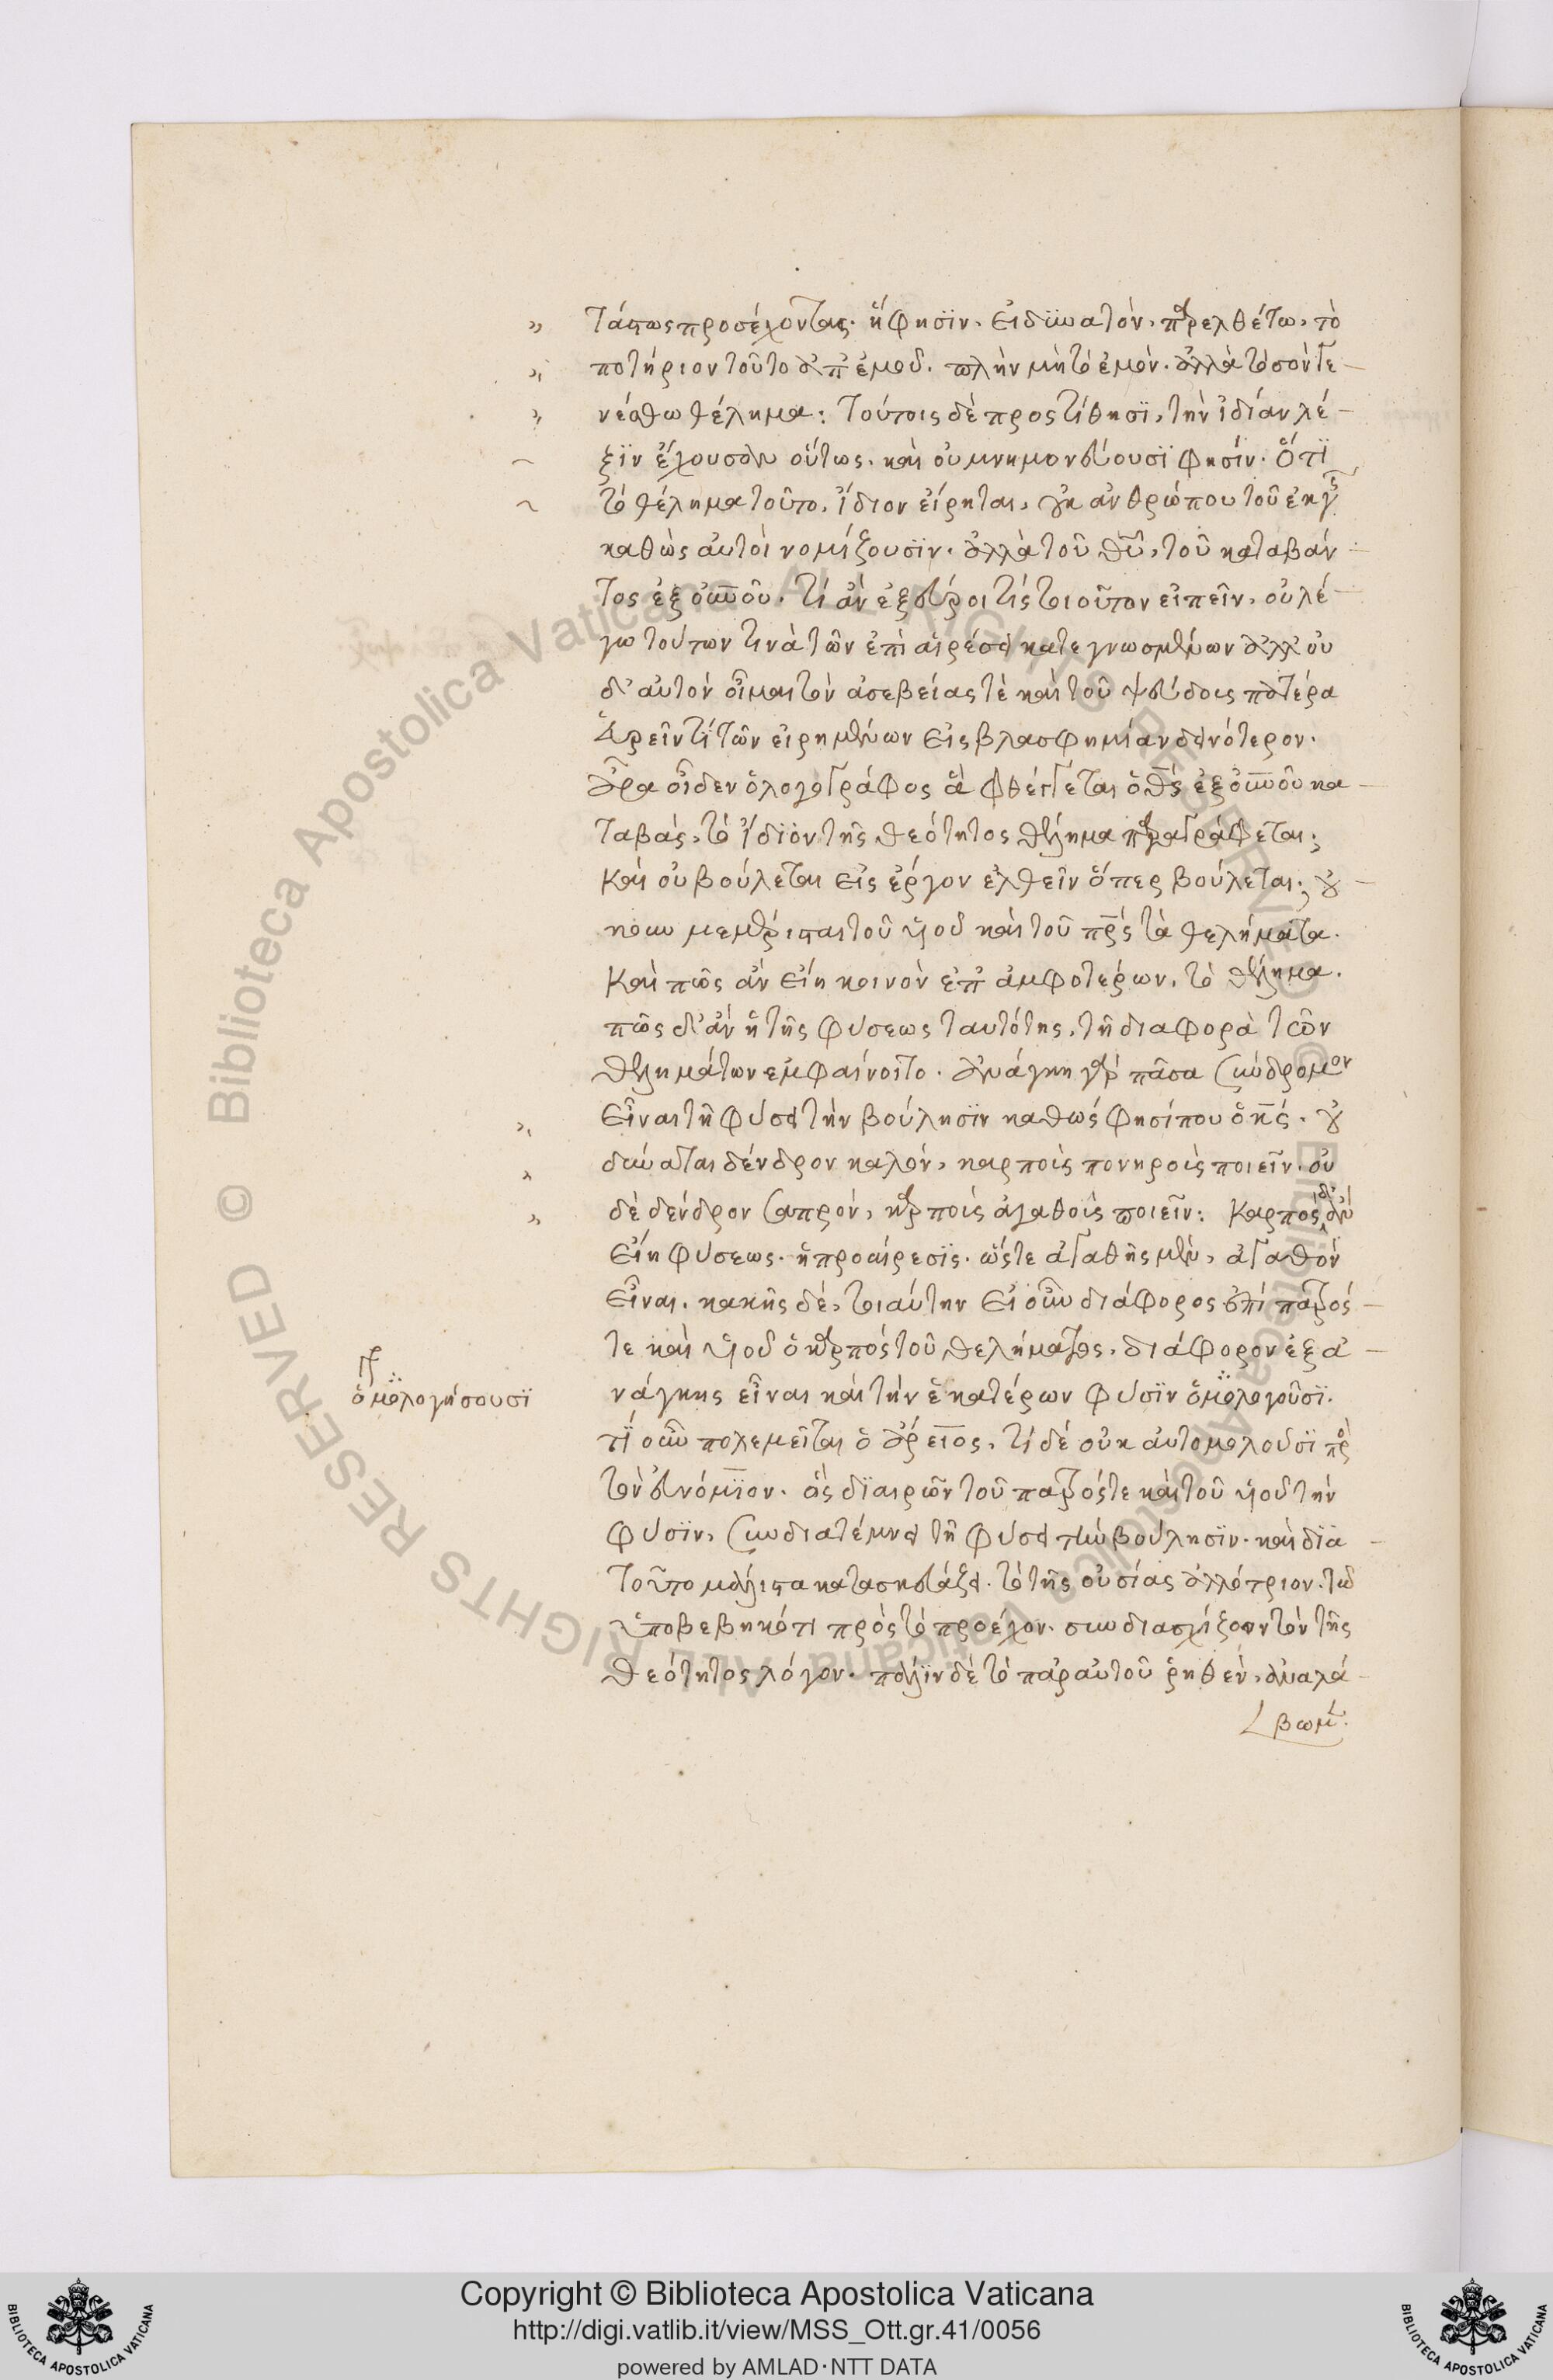 τάπως προσέχοντας. ἥ φησϊν. εἰ δϋνατὸν, παρελθέτω, τὸ
ποτήριον τοῦτο ἀπ' ἐμοῦ. πλὴν μὴ τὸ ἐμὸν. ἀλλὰ τὸ σὸν γε
νέσθω θέλημα: τούτοις δὲ προστίθησϊ, τὴν ἰδίαν λέ
ξϊν ἔχουσαν οὕτως. καὶ οὐ μνημονεύουσϊ φησίν. ὅτϊ
τὸ θέλημα τοῦτο, ἴδιον εἴρηται, οὐκ ἀνθρώπου τοῦ ἐκ γῆς
καθὼς αὐτοὶ νομίζουσϊν. ἀλλὰ τοῦ θῦ, τοῦ καταβάν
τος ἐξ οὐνοῦ. τί ἂν ἐξεύροι τίς τοιοῦτον εἰπεῖν, οὐ λέ
γω τούτων τινὰ τῶν ἐπὶ αἱρέσει κατεγνωσμένων ἀλλ' οὐ
δ' αὐτὸν οἶμαι τὸν ἀσεβείας τὲ καὶ τοῦ ψεύδους πατέρα
εὑρεῖν τί τῶν εἰρημένων εἰς βλασφημίαν δεινότερον.
ἆρα οἶδεν ὁ λογογράφος ἃ φθέγγεται ὁ θς ἐξ οὐνοῦ κα
ταβὰς, τὸ ἴδϊον τῆς θεότητος θέλημα παραγράφεται;
καὶ οὐ βούλεται εἰς ἔργον ἐλθεῖν ὅπερ βούλεται; οὐ
κοῦν μεμέρισται τοῦ υἱοῦ καὶ τοῦ πρς τὰ θελήματα.
καὶ πῶς ἂν εἴη κοινὸν ἐπ' ἀμφοτέρων, τὸ θέλημα.
πῶς δ' ἂν ἡ τῆς φύσεως ταυτότης, τῇ διαφορᾷ τῶν
θελημάτων ἐμφαίνοιτο. ἀνάγκη γὰρ πᾶσα σύνδρομον
εἶναι τῇ φύσει τὴν βούλησϊν καθώς φησί που ὁ κς. οὐ
δύναται δένδρον καλὸν, καρποὺς πονηροὺς ποιεῖν. οὐ
δὲ δένδρον σαπρὸν, καρποὺς ἀγαθοὺς ποιεῖν: καρπὸς δ' ἂν
εἴη φύσεως. ἡ προαίρεσϊς. ὥστε ἀγαθῆς μὲν, ἀγαθὸν
εἶναι. κακῆς δὲ, τοιαύτην εἰ οὖν διάφορος ἐπὶ πατρός
τε καὶ υἱοῦ ὁ καρπὸς τοῦ θελήματος, διάφορον ἐξ ἀ
νάγκης εἶναι καὶ τὴν ἑκατέρων φύσϊν ὁμολογοῦσϊ.
γρ
ὁμολογήσουσϊ
τί οὖν πολεμεῖται ὁ ἄρειος, τί δὲ οὐκ αὐτομολοῦσϊ πρὸς
τὸν εὐνόμϊον. ὃς δϊαιρῶν τοῦ πατρός τε καὶ τοῦ υἱοῦ τὴν
φύσϊν, συνδιατέμνει τῇ φύσει τὴν βούλησϊν. καὶ δϊὰ
τοῦτο μάλιστα κατασκευάζει. τὸ τῆς οὐσίας ἀλλότριον. τῶ
ὑποβεβηκότι πρὸς τὸ προέχον. συνδιασχίζων τὸν τῆς
θεότητος λόγον. πάλϊν δὲ τὸ παρ' αὐτοῦ ῥηθὲν, ἀναλά
βωμεν.
Copyright © Biblioteca Apostolica Vaticana
http://digi.vatlib.it/view/MSS_Ott.gr.41/0056
powered by AMLAD·NTT DATA